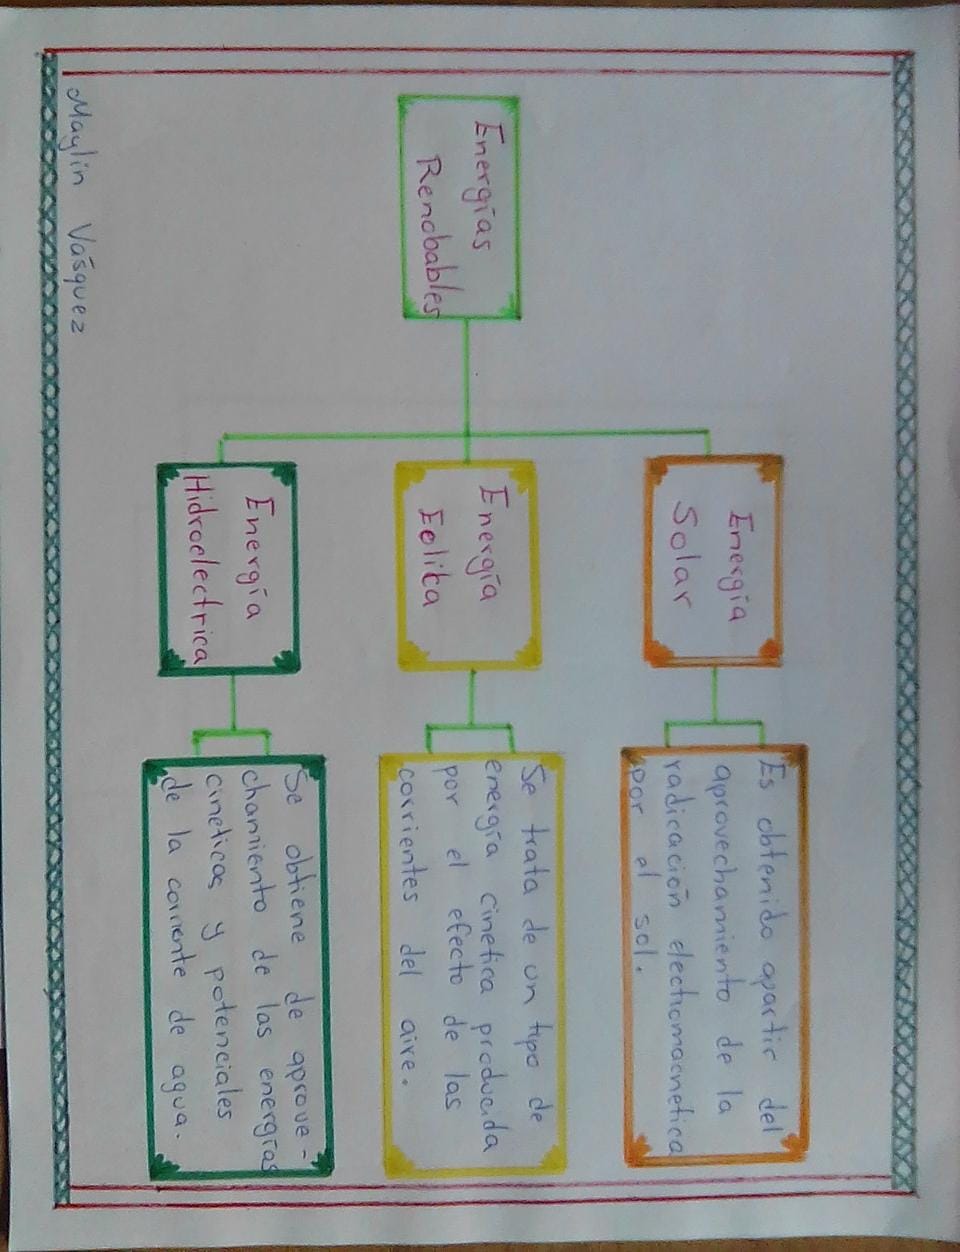 Energías
Renobables
Energía
Solar
Es obtenido apartir del
aprovechamiento de la
radicación electromacnetica
por el sol.
Energía
Eolica
Se trata de un tipo de
energía cinetica producida
por el efecto de las
corrientes del aire.
Energía
Hidroelectrica
Se obtiene de aprove-
chamiento de las energías
cineticas y potenciales
de la corriente de agua.
Maylin Vásquez